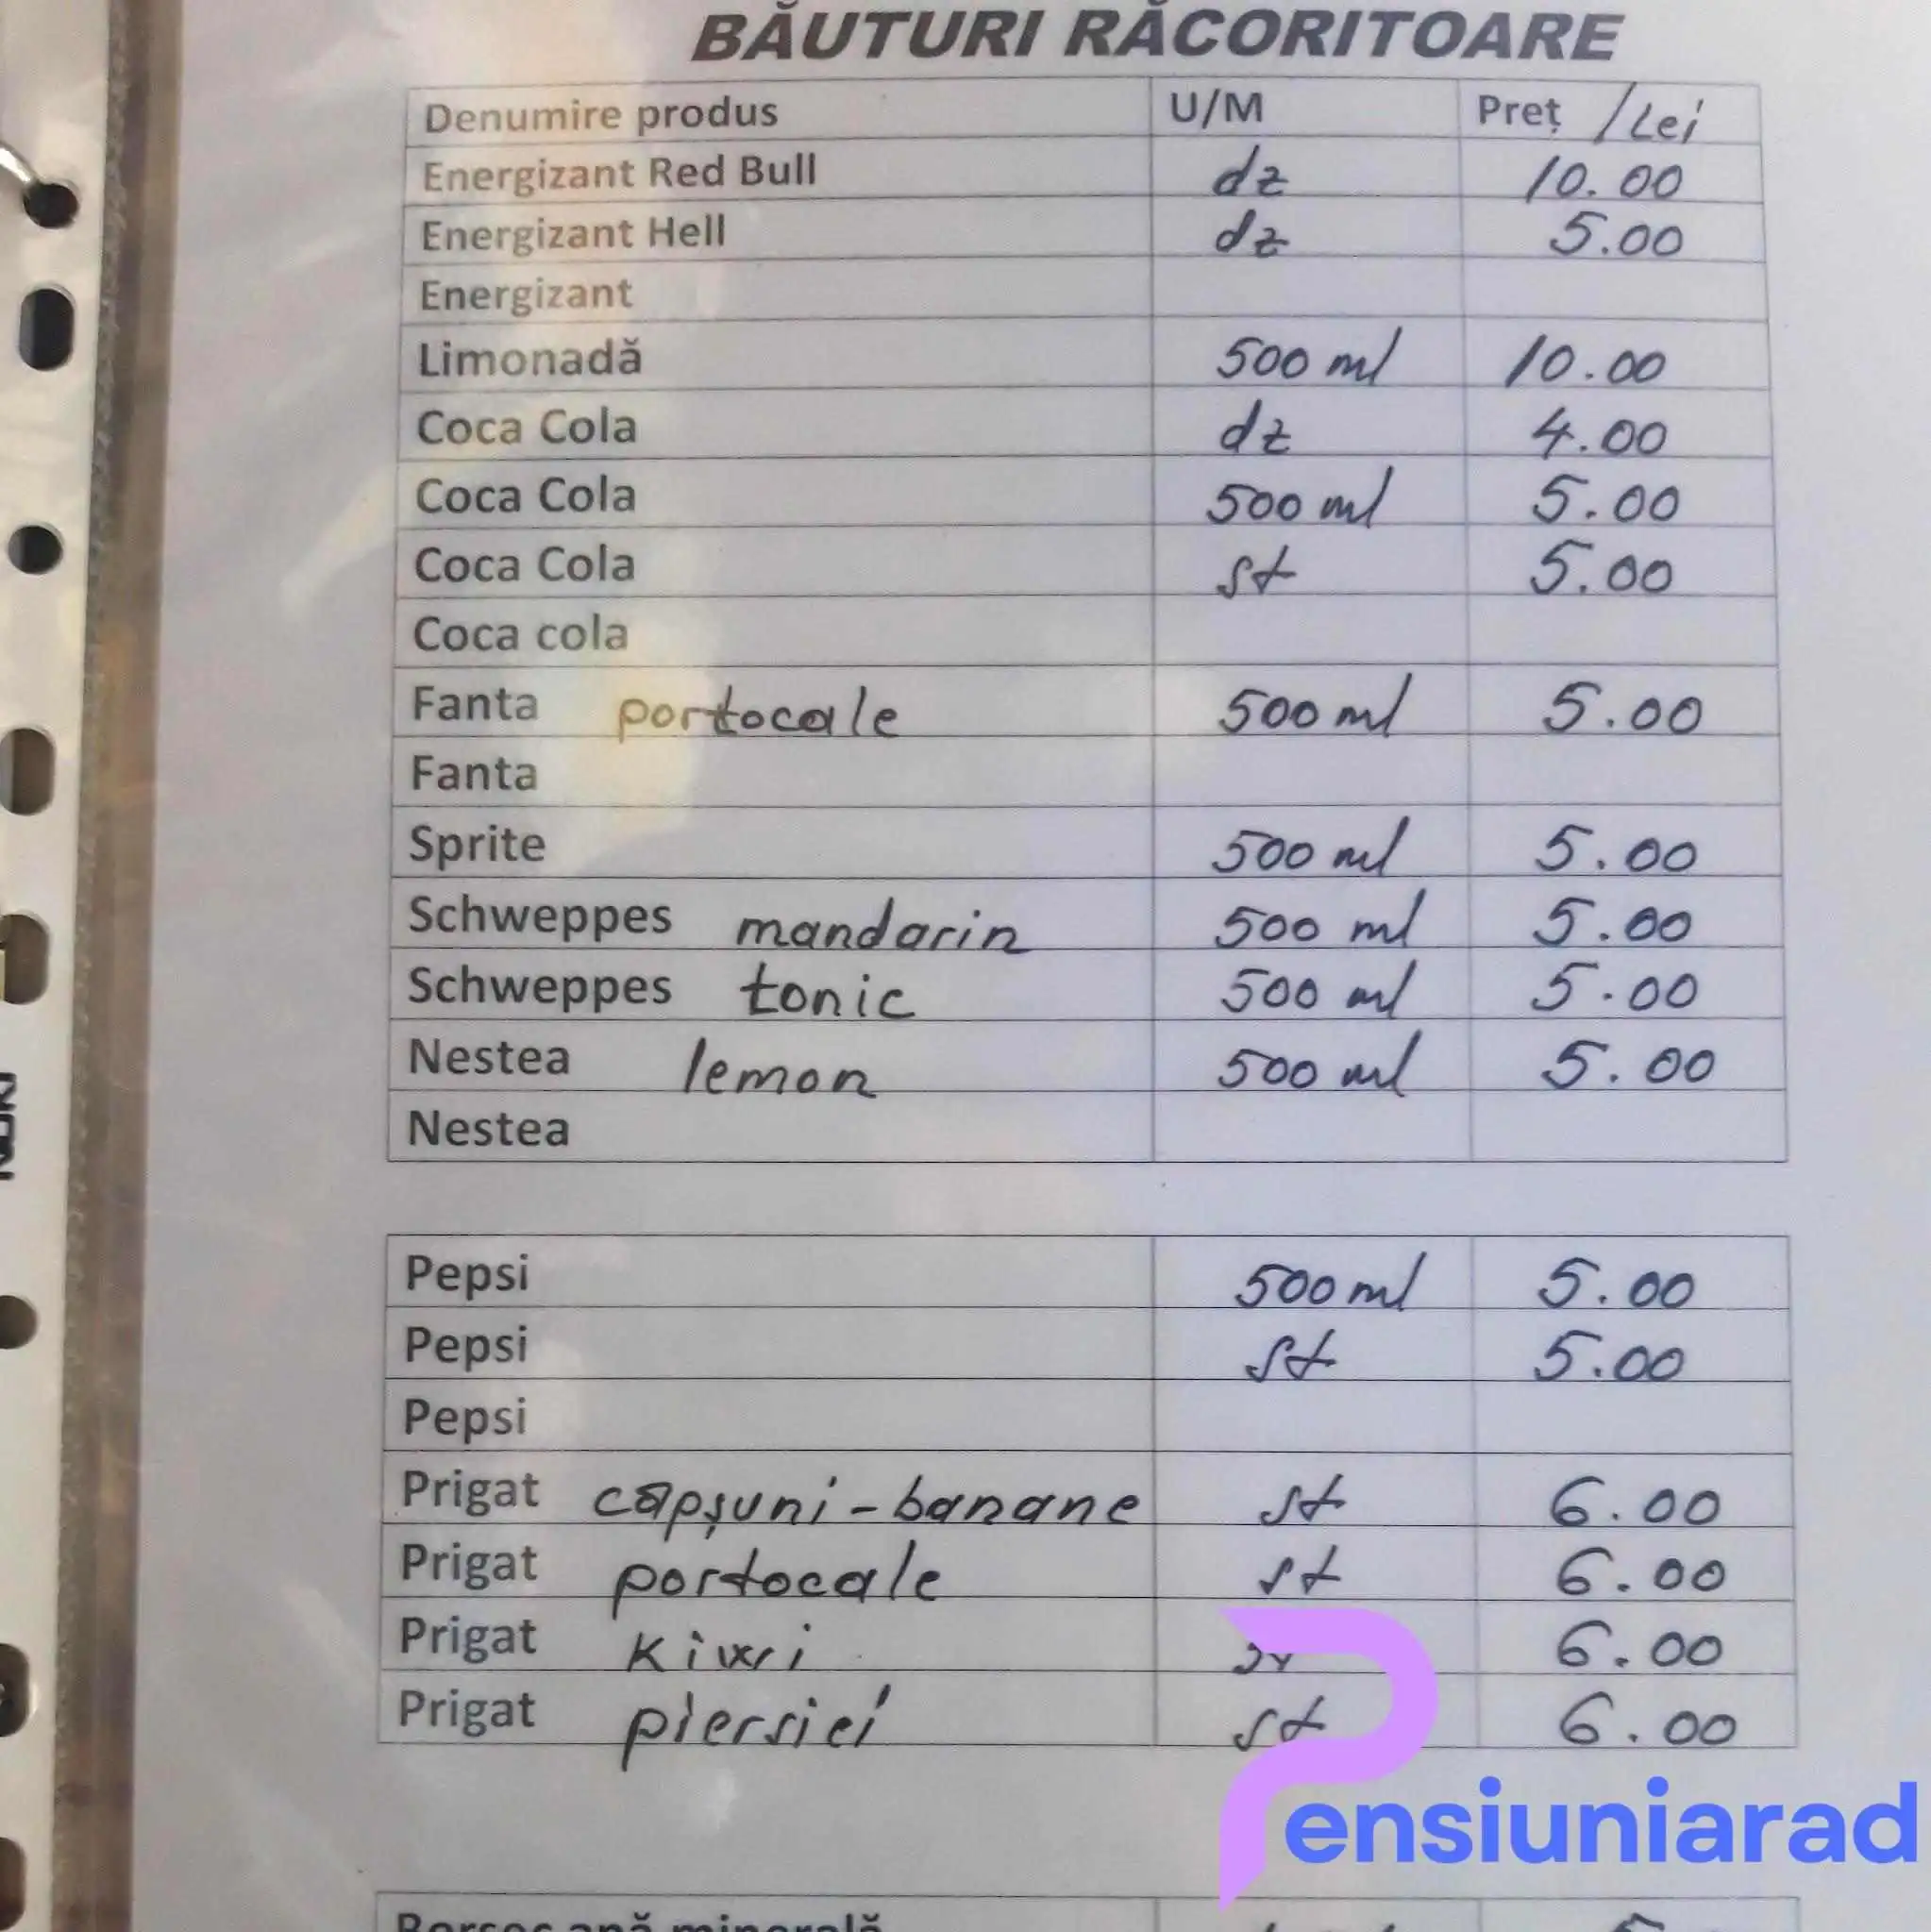 BĂUTURI RĂCORITOARE
Denumire produs U/M Preț /Lei
Energizant Red Bull dz 10.00
Energizant Hell dz 5.00
Energizant
Limonadă 500 ml 10.00
Coca Cola dz 4.00
Coca Cola 500 ml 5.00
Coca Cola st 5.00
Coca cola
Fanta portocale 500 ml 5.00
Fanta
Sprite 500 ml 5.00
Schweppes mandarin 500 ml 5.00
Schweppes tonic 500 ml 5.00
Nestea lemon 500 ml 5.00
Nestea
Pepsi 500 ml 5.00
Pepsi st 5.00
Pepsi
Prigat căpșuni-banane st 6.00
Prigat portocale st 6.00
Prigat kiwi 6.00
Prigat piersici st 6.00
Pensiuniarad